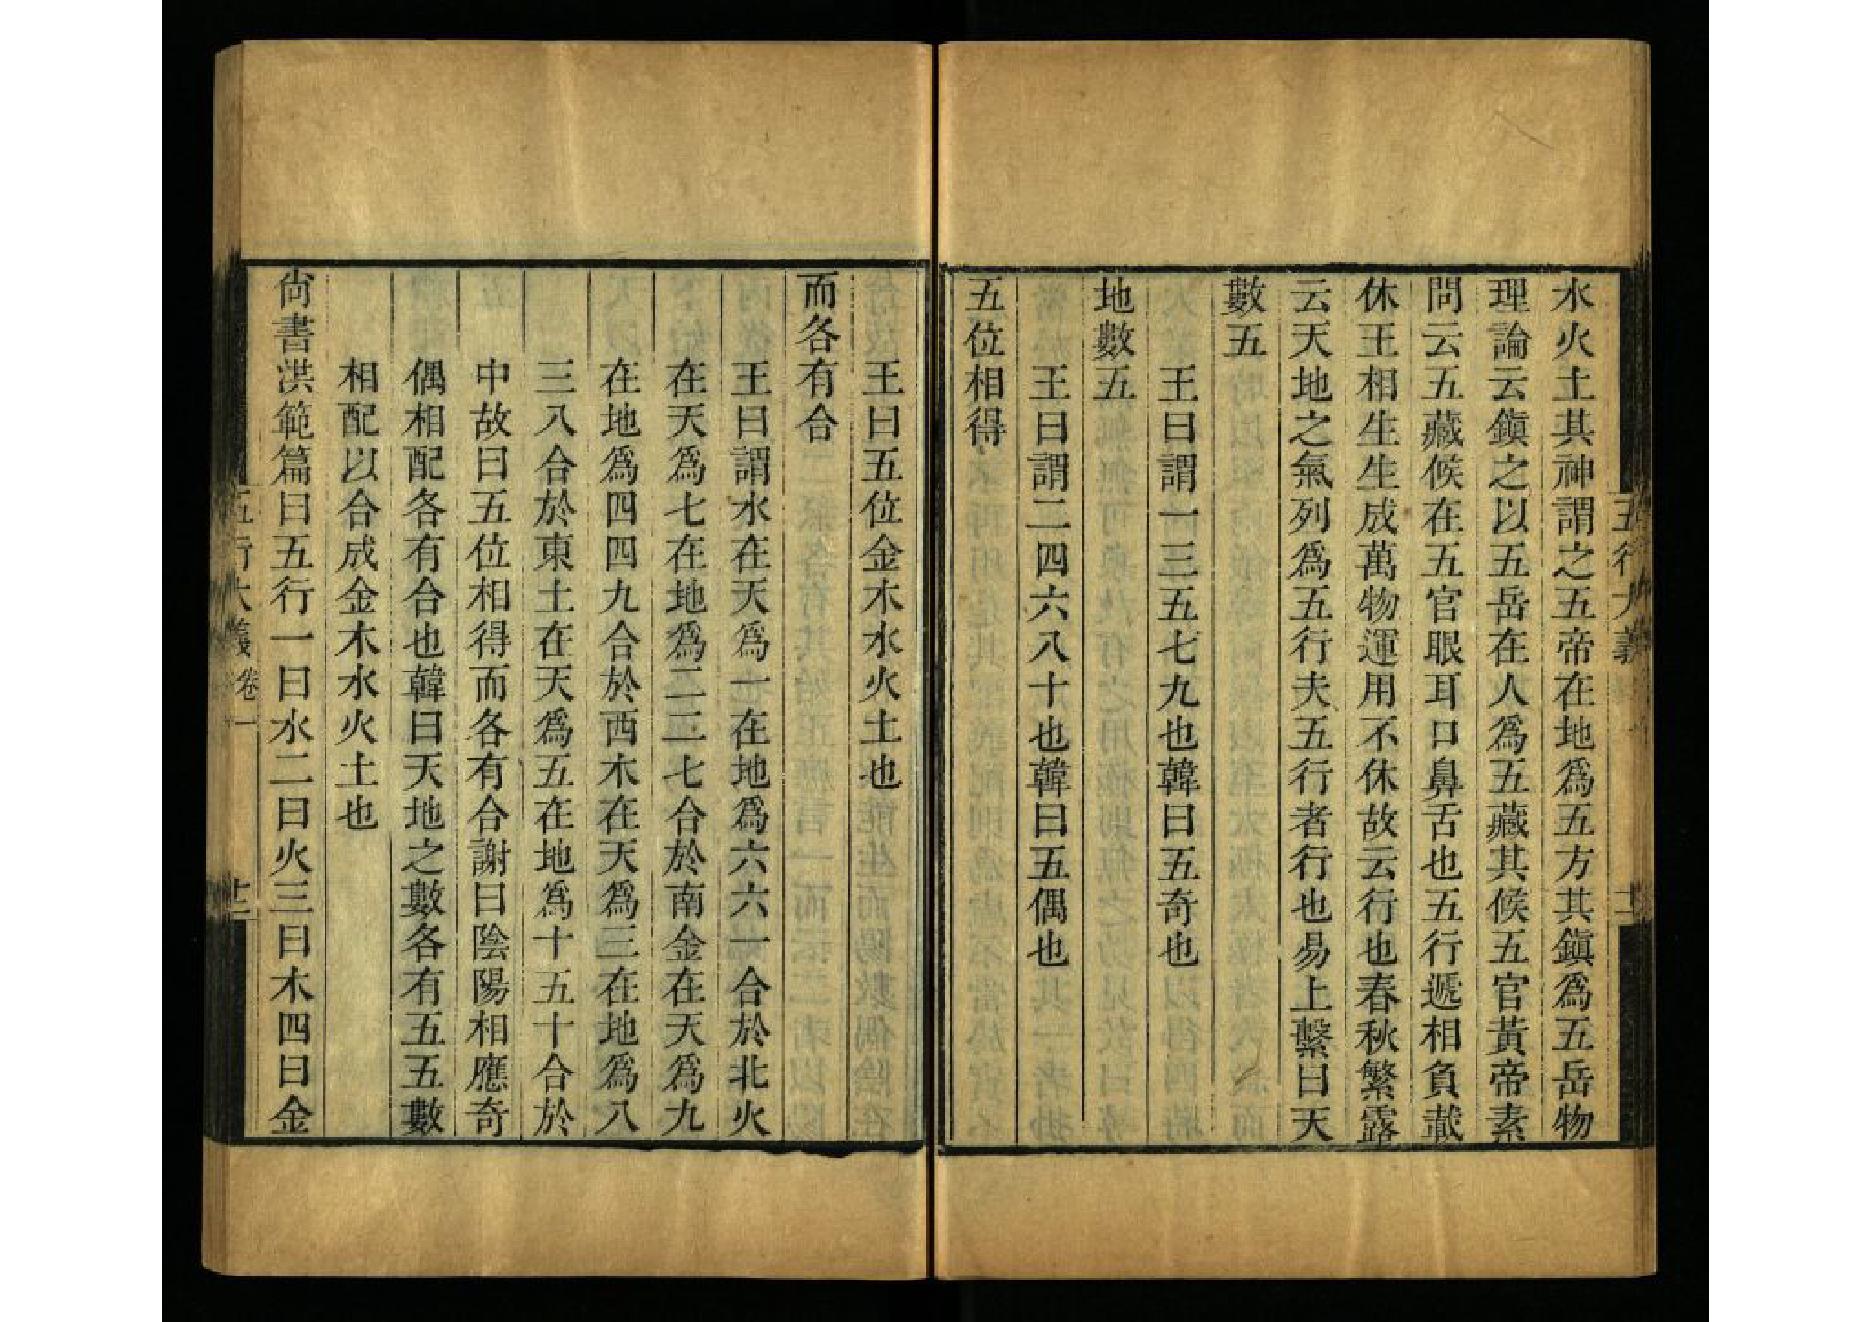 水火土其神謂之五帝在地爲五方其鎭爲五岳物
理論云鎭之以五岳在人爲五藏其候五官黃帝素
問云五藏候在五官眼耳口鼻舌也五行遞相負載
休王相生生成萬物運用不休故云行也春秋繁露
云天地之氣列爲五行夫五行者行也易上繫曰天
數五
王曰謂一三五七九也韓曰五奇也
地數五
王曰謂二四六八十也韓曰五偶也
五位相得
王曰五位金木水火土也
而各有合
王曰謂水在天爲一在地爲六六一合於北火
在天爲七在地爲二二七合於南金在天爲九
在地爲四四九合於西木在天爲三在地爲八
三八合於東土在天爲五在地爲十五十合於
中故曰五位相得而各有合謝曰陰陽相應奇
偶相配各有合也韓曰天地之數各有五五數
相配以合成金木水火土也
尙書洪範篇曰五行一曰水二曰火三曰木四曰金
五行大義卷一
十二